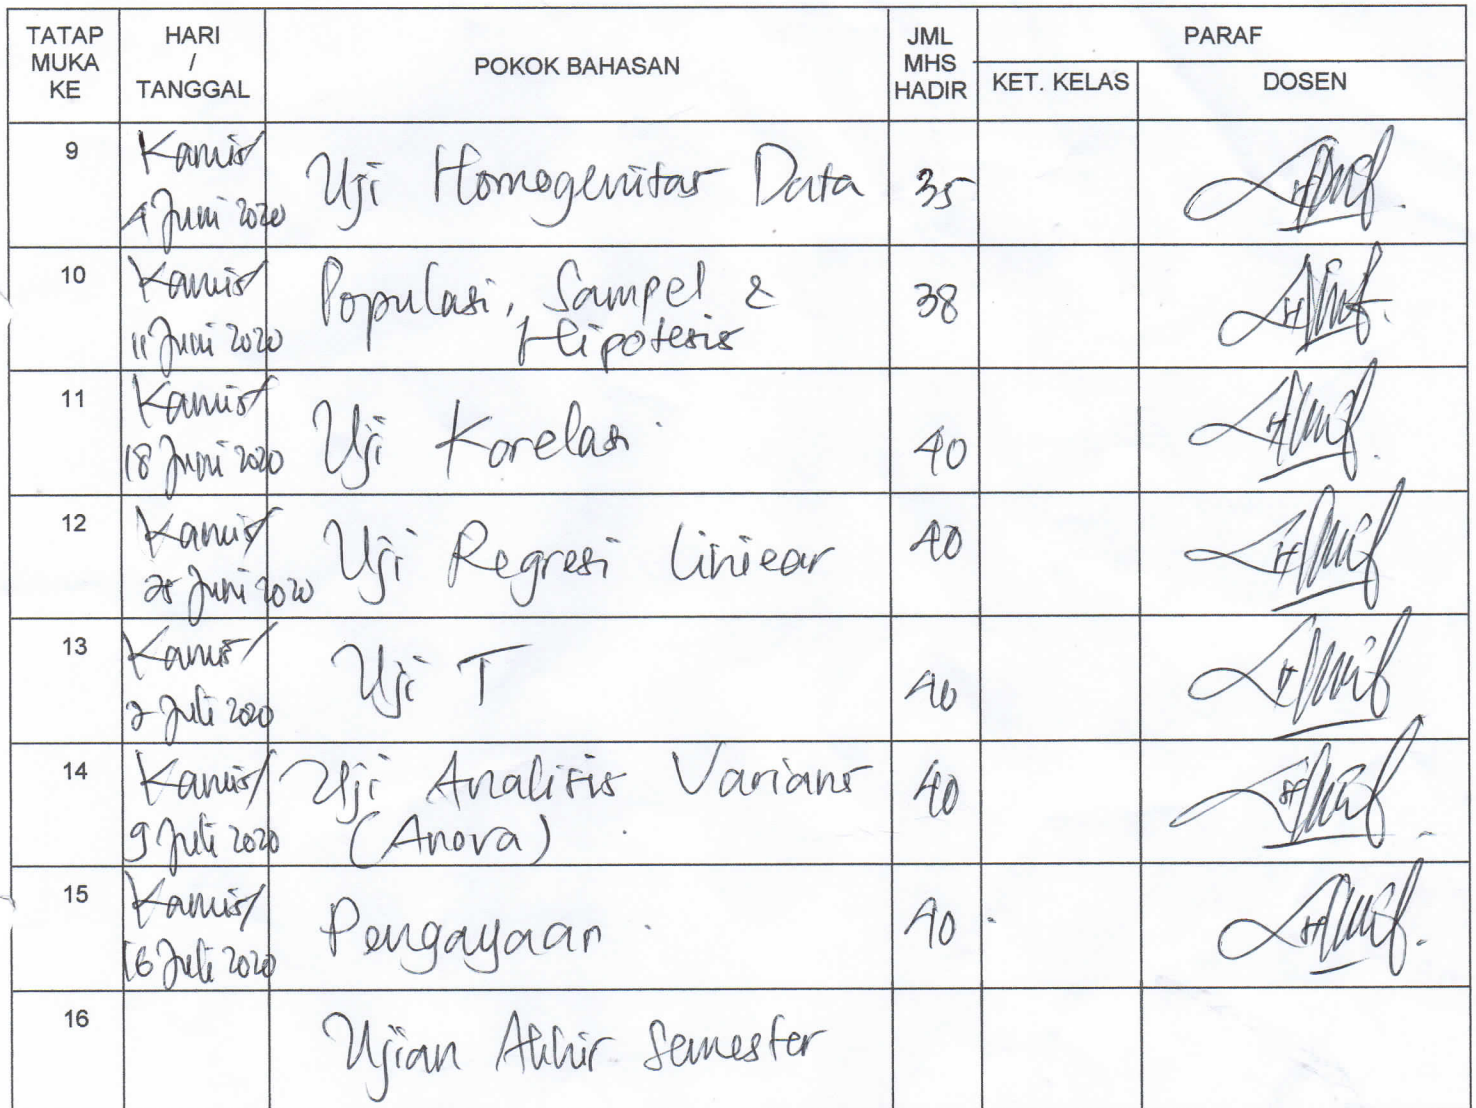 TATAP MUKA KE HARI / TANGGAL POKOK BAHASAN JML MHS HADIR PARAF
KET. KELAS DOSEN
9 Kamis/ 4 Juni 2020 Uji Homogenitas Data 35
10 Kamis/ 11 Juni 2020 Populasi, Sampel & Hipotesis 38
11 Kamis/ 18 Juni 2020 Uji Korelasi 40
12 Kamis/ 25 Juni 2020 Uji Regresi Liniear 40
13 Kamis/ 2 Juli 2020 Uji T 40
14 Kamis/ 9 Juli 2020 Uji Analisis Varians (Anova) 40
15 Kamis/ 16 Juli 2020 Pengayaan 40
16 Ujian Akhir Semester